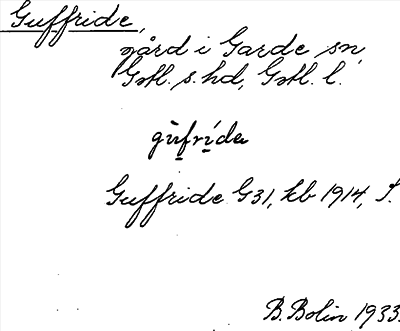 Guffride,
gård i Garde sn,
Gotl. s. hd, Gotl. l.
gùfrída
Guffride G31, kb 1914, S.
B. Bolin 1933.